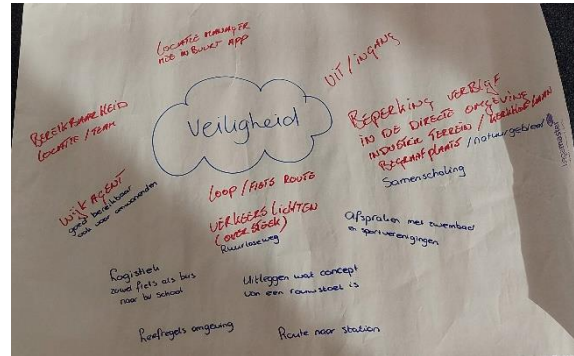 LOCATIE MANAGER
MOE IN BUURT APP
UIT / INGANG
BEREIKBAARHEID
LOCATIE / TEAM
Veiligheid
BEPERKING VERBLIJF
IN DE DIRECTE OMGEVING
INDUSTRIE TERREIN / KERKHOF LAAN
BEGRAAFPLAATS / natuurgebied
Samenscholing
WIJK AGENT
goed bereikbaar
ook voor omwonenden
LOOP / FIETS ROUTE
VERKEERS LICHTEN
(OVERSTOEK)
Ruurloseweg
Afspraken met zwembad
en sportverenigingen
Logistiek
zowel fiets als bus
naar bv school
Uitleggen wat concept
van een rouwstoet is
Leefregels omgeving
Route naar station